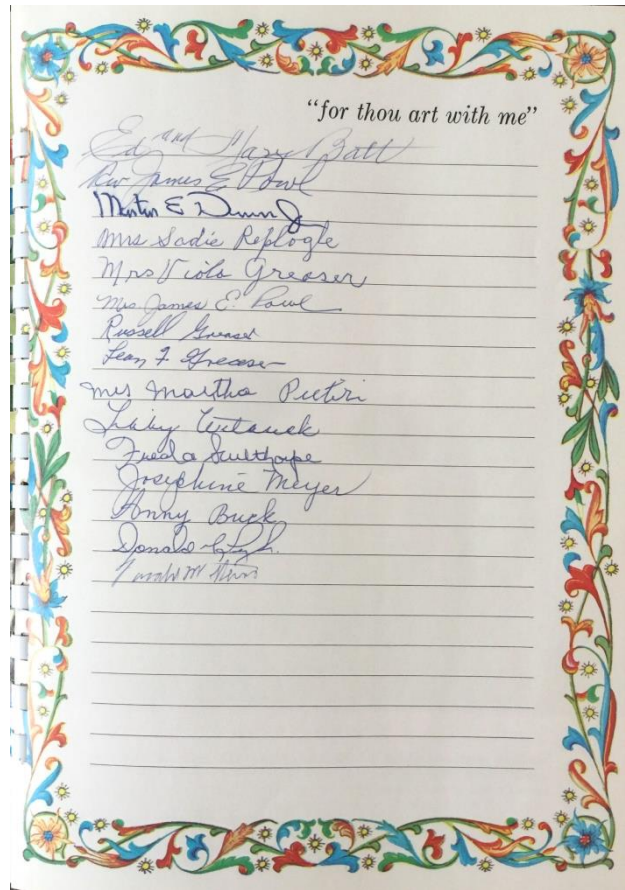 "for thou art with me"
Ed and Mary Batt
Rev James E Powl
Martin E Dunn Jr
Mrs Sadie Replogle
Mrs Viola Greaser
Mrs James E. Powl
Russell Greaser
Jean F Greaser
Mrs Martha Pietri
Libby
Freda Sculthorpe
Josephine Meyer
Anny Buck
Donald
M